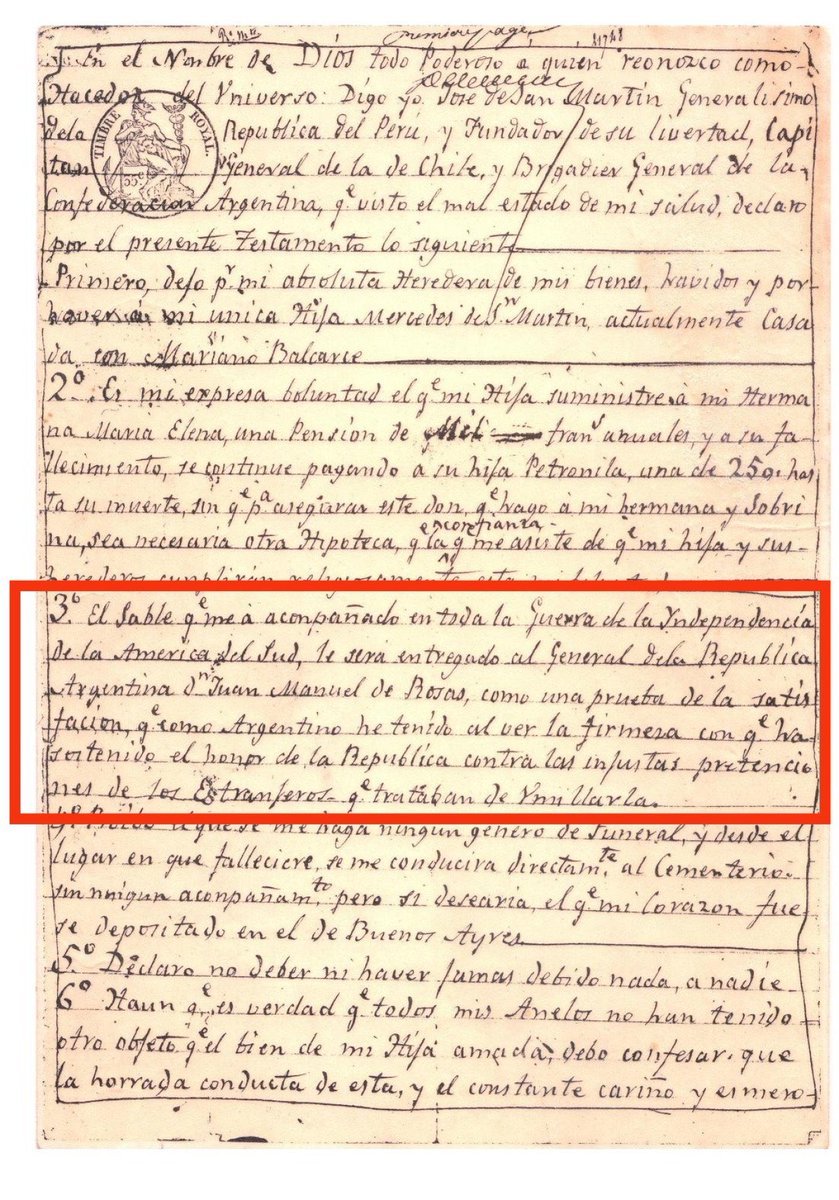 première page
En el Nonbre de Dios todo Poderoso á quien reonozco como
Hacedor del Vniverso: Digo yo José de San Martin Generalisimo
dela Republica del Perú, y Fundador de su livertad, Capi
tan General de la de Chile, y Brigadier General de la
Confederacion Argentina, qe visto el mal estado de mi salud, declaro
por el presente Testamento lo siguiente
TIMBRE ROYAL.
Primero, dejo pr mi absoluta Heredera de mis bienes, havidos y por
haver á mi unica Hija Mercedes de Sn Martin, actualmente Casa
da con Mariano Balcarce
2º Es mi expresa boluntad el qe mi Hija suministre á mi Herma
na Maria Elena, una Pension de Mil frans anuales, y a su fa-
llecimiento, se continue pagando a su hija Petronila, una de 250 has
ta su muerte, sin qe pa asegurar este don, qe hago á mi hermana y Sobri
na, sea necesaria otra Hipoteca, qe la confianza qe me asiste de qe mi hija y sus
herederos cumplirán religiosamente
3º El Sable qe me á aconpañado en toda la Guerra de la Yndependencia
de la America del Sud, le será entregado al General dela Republica
Argentina dn Juan Manuel de Rosas, como una prueba de la satis
facion, qe como Argentino he tenido al ver la firmeza con qe ha
sostenido el honor de la Republica contra las injustas pretencio
nes de los Estranjeros qe trataban de Vmillarla.
4º Proibo el que se me haga ningun genero de Funeral, y desde el
lugar en que falleciere, se me conducira directamte al Cementerio
sin ningun aconpañamto, pero si desearia, el qe mi Corazon fue
se depositado en el de Buenos Ayres
5º Declaro no deber ni haver jamas debido nada, a nadie
6º Haun qe es verdad qe todos mis Anelos no han tenido
otro objeto qe el bien de mi Hija amada, debo confesar. que
la horrada conducta de esta, y el constante cariño y esmero